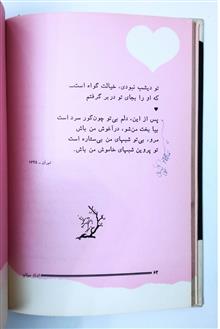 تو دیشب نبودی، خیالت گواه است...
که او را بجای تو دربر گرفتم
♥
پس از این، دلم بی‌تو چون‌گور سرد است
بیا بخت من‌شو، درآغوش من باش.
مرو، بی‌تو شبهای من بی‌ستاره است
تو پروین شبهای خاموش من باش.
تهران - ۱۳۳۵
۶۲